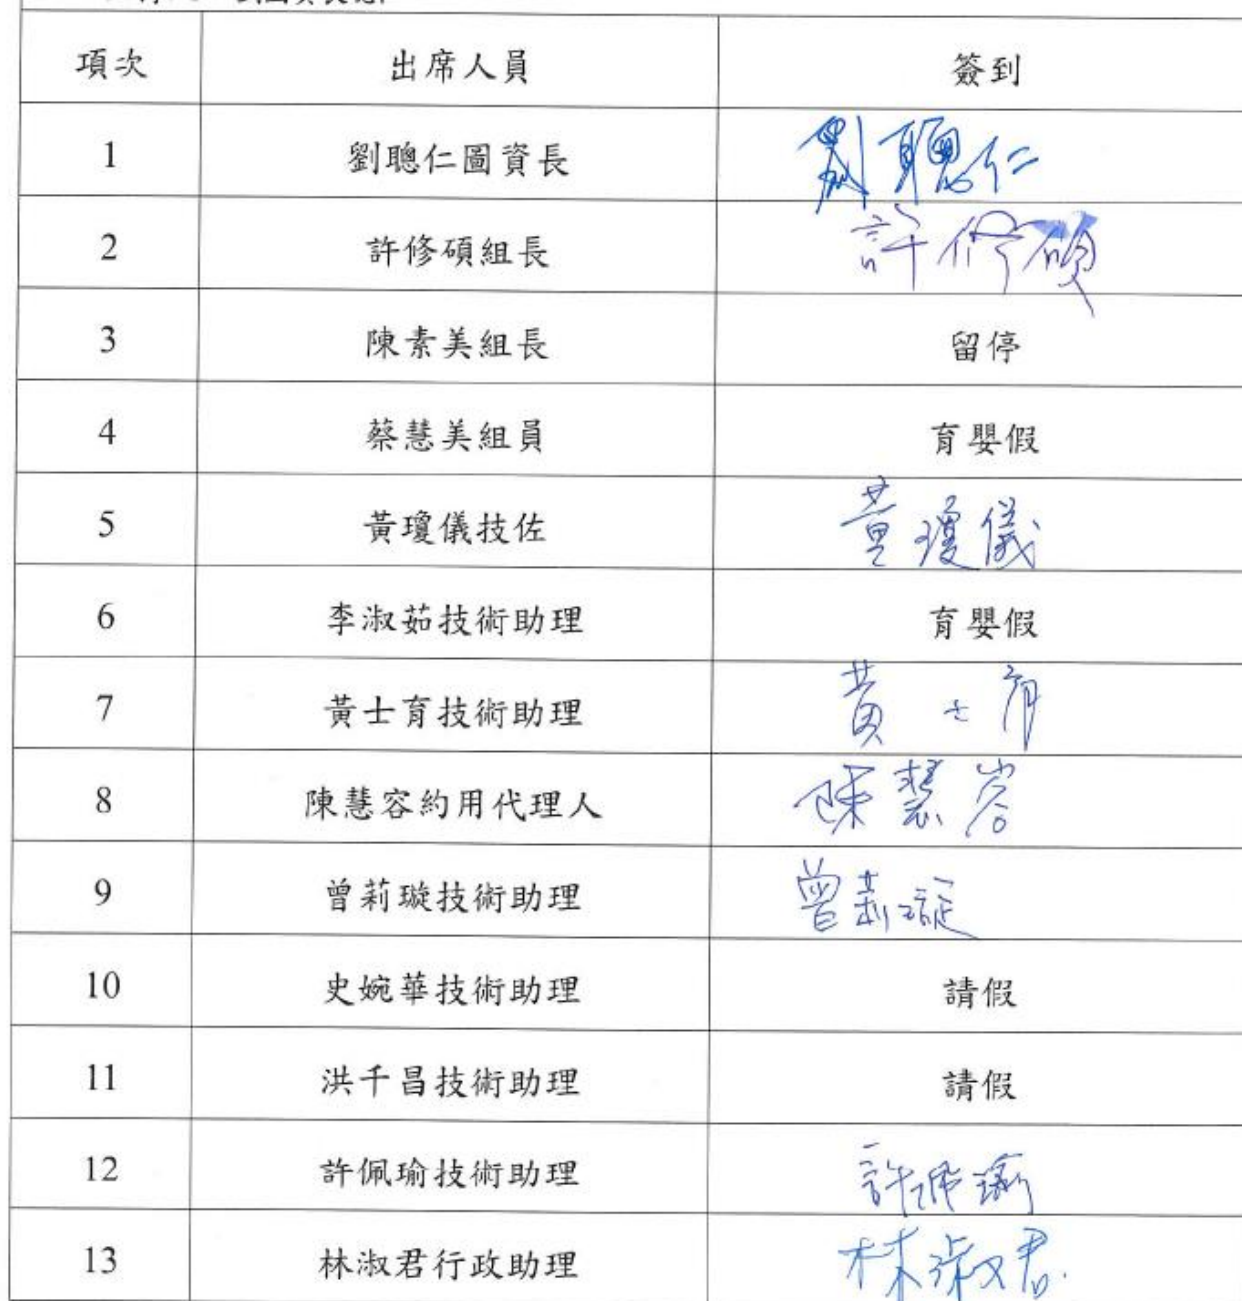 項次 出席人員 簽到
1 劉聰仁圖資長 劉聰仁
2 許修碩組長 許修碩
3 陳素美組長 留停
4 蔡慧美組員 育嬰假
5 黃瓊儀技佐 黃瓊儀
6 李淑茹技術助理 育嬰假
7 黃士育技術助理 黃士育
8 陳慧容約用代理人 陳慧容
9 曾莉璇技術助理 曾莉璇
10 史婉華技術助理 請假
11 洪千昌技術助理 請假
12 許佩瑜技術助理 許佩瑜
13 林淑君行政助理 林淑君